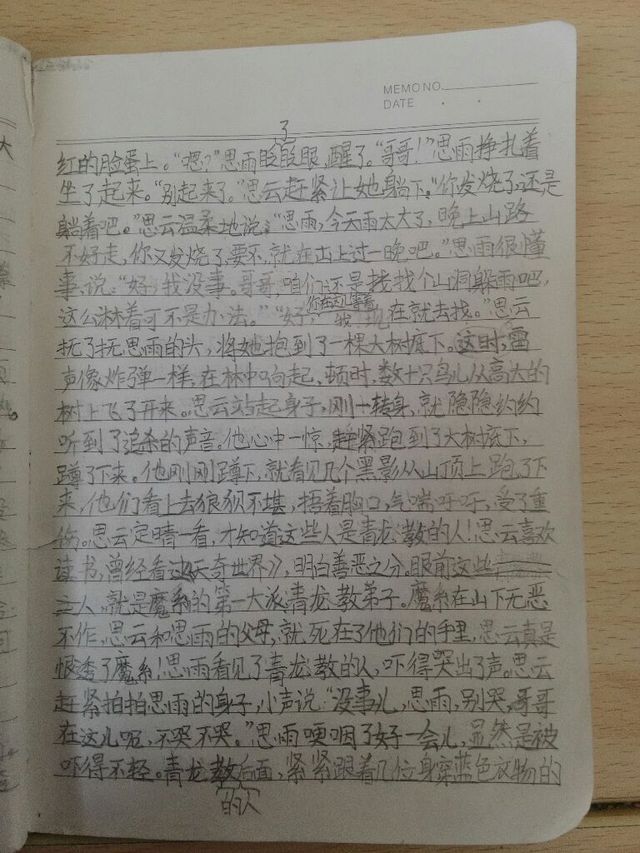 MEMO NO.
DATE
了
红的脸蛋上。“嗯?”思雨眨眨眼,醒了。“哥哥!”思雨挣扎着
坐了起来。“别起来了。”思云赶紧让她躺下。“你发烧了,还是
躺着吧。”思云温柔地说:“思雨,今天雨太大了,晚上山路
不好走,你又发烧了,要不,就在山上过一晚吧。”思雨很懂
事,说:“好,我没事。哥哥,咱们还是找找个山洞躲雨吧,
这么淋着可不是办法。”“好,我现在就去找。”思云
你在这儿等着,
抚了抚思雨的头,将她抱到了一棵大树底下。这时,雷
声像炸弹一样,在林中响起,顿时,数十只鸟儿从高大的
树上飞了开来。思云站起身子,刚一转身,就隐隐约约
听到了追杀的声音。他心中一惊,赶紧跑到了大树底下,
蹲了下来。他刚刚蹲下,就看见几个黑影从山顶上跑了下
来,他们看上去狼狈不堪,捂着胸口,气喘吁吁,受了重
伤。思云定晴一看,才知道这些人是青龙教的人!思云喜欢
读书,曾经看过《天奇世界》,明白善恶之分。眼前这些
之人,就是魔系的第一大派,青龙教弟子。魔系在山下无恶
不作,思云和思雨的父母,就死在了他们的手里,思云真是
恨透了魔系!思雨看见了青龙教的人,吓得哭出了声。思云
赶紧拍拍思雨的身子,小声说:“没事儿,思雨,别哭,哥哥
在这儿呢,不哭不哭。”思雨哽咽了好一会儿,显然是被
吓得不轻。青龙教后面,紧紧跟着几位身穿蓝色衣物的
的人